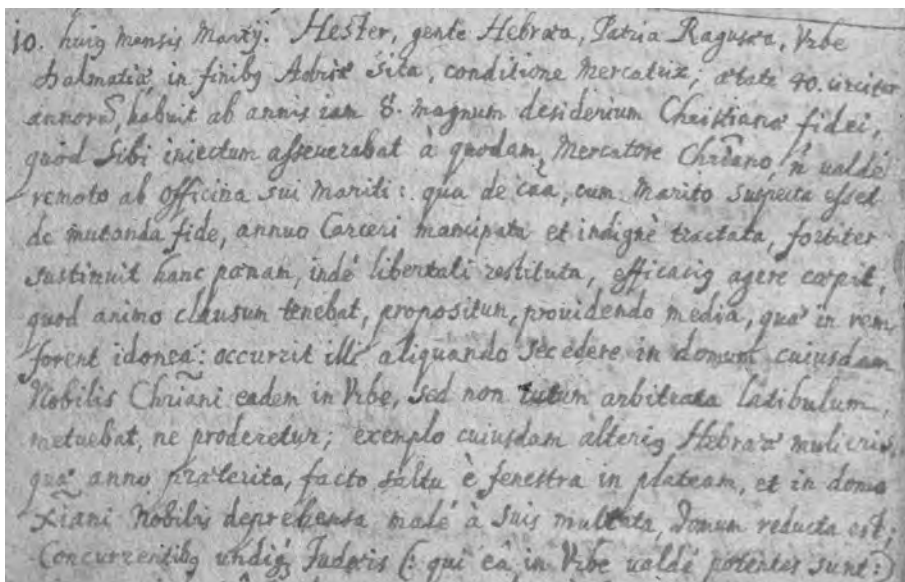 10. huiꝰ mensis Martÿ. Hester, gente Hebræa, Patria Ragusæa, Vrbe
Dalmatiæ in finibꝰ Adriæ sita, conditione Mercatrix; ætate 40. circiter
annorũ, habuit ab annis iam 8. magnum desiderium Christianæ fidei,
quòd sibi iniectum asseuerabat à quodam Mercatore Chr̃iano, ñ ualdè
remoto ab officina sui mariti: qua de cãa, cum marito suspecta esset
de mutanda fide, annuo Carceri mancipata et indignè tractata, fortiter
sustinuit hanc pœnam, indè libertati restituta, efficaciꝰ agere cœpit,
quod animo clausum tenebat, propositun, prouidendo media, quæ in rem
forent idonea: occurrit illi aliquando secedere in domum cuiusdam
Nobilis Chr̃iani eadem in Vrbe, sed non tutum arbitrata latibulum,
metuebat, ne proderetur; exemplo cuiusdam alteriꝰ Hebrææ mulieris,
quæ anno præterito, facto saltu è fenestra in plateam, et in domo
Xiãni Nobilis deprehensa malè à suis multata, domum reducta est;
Concurrentibꝰ undiq; Judæis (: qui eâ in Vrbe ualdè potentes sunt :)